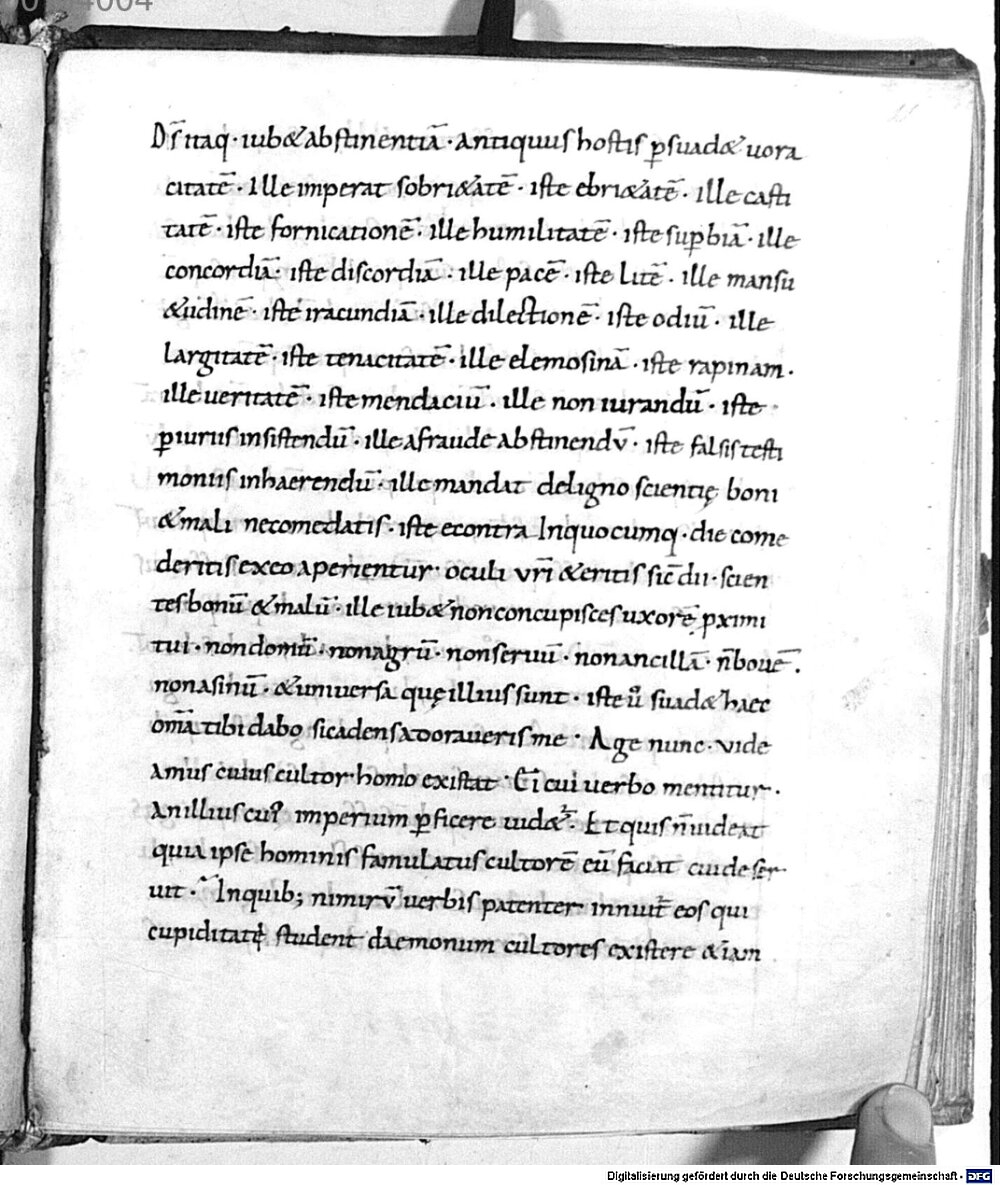 D̄s itaq · iub&abstinentiā · antiquus hostis ꝑsuad& uora
citatē · Ille imperat sobri&atē · iste ebri&atē · ille casti
tatē · iste fornicationē · ille humilitatē · iste suꝑbiā · ille
concordiā · iste discordiā · ille pacē · iste litē · ille mansu
&udinē · iste iracundiā · ille dilectionē · iste odiū · ille
largitatē · iste tenacitatē · ille elemosinā · iste rapinam ·
ille ueritatē · iste mendaciū · ille non iurandū · iste
ꝑiuriis insistendū · ille afraude abstinendv̄ · iste falsis testi
moniis inhaerendū · ille mandat deligno scientię boni
&mali necomedatis · iste econtra Inquocumq · die come
deritis exeo aperientur oculi vr̄i &eritis sic̄ dii · scien
tes bonū &malū · ille iub& nonconcupisces uxorē ꝓximi
tui · nondomū · nonagrū · nonseruū · nonancillā · n̄ bouē ·
nonasinū · &uniuersa quę illius sunt · iste ū suad& haec
om̄a tibi dabo sicadens adoraueris me · Age nunc · uide
amus cuius cultor homo existat · Ei cui uerbo mentitur ·
an illius cuꝰ imperium ꝑficere uid&ur · Et quis n̄ uideat
quia ipse hominis famulatus cultorē eū faciat cui deser
uit · Inquib; nimirv̄ uerbis patenter innuit̄ eos qui
cupiditati student daemonum cultores existere &iam
Digitalisierung gefördert durch die Deutsche Forschungsgemeinschaft - DFG